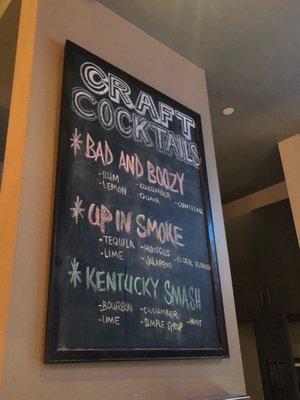 CRAFT
COCKTAILS
* BAD AND BOOZY
-RUM -CUCUMBER -COINTREAU
-LEMON -GUAVA
* UP IN SMOKE
-TEQUILA -HIBISCUS -ELDER FLOWER
-LIME -JALAPEÑO
* KENTUCKY SMASH
-BOURBON -CUCUMBER -MINT
-LIME -SIMPLE SYRUP